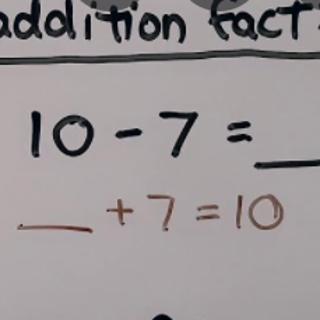 addition fact
10 - 7 = __
__ + 7 = 10